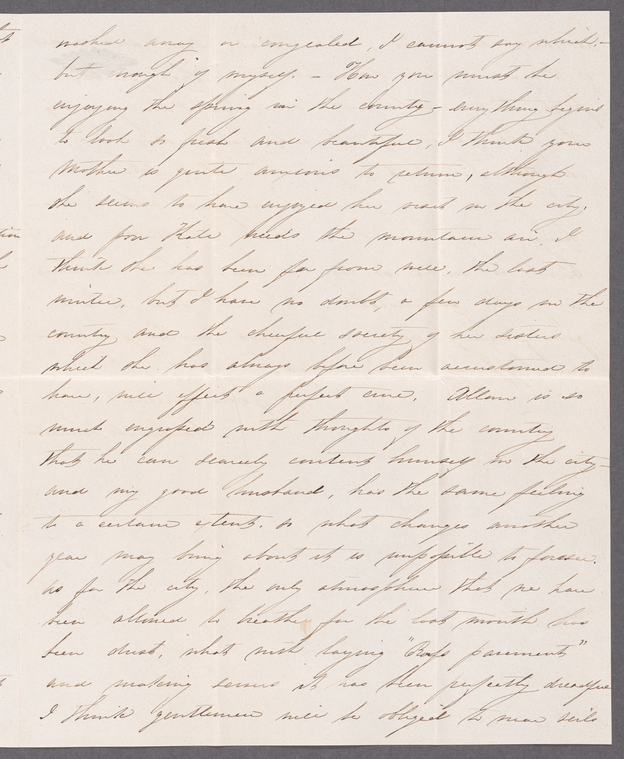 washed away or congealed, I cannot say which.—
but enough of myself. — How you must be
enjoying the spring in the country — everything begins
to look so fresh and beautiful, I think your
mother is quite anxious to return, although
she seems to have enjoyed her visit in the city,
and poor Kate needs the mountain air. I
think she has been far from well, the last
winter, but I have no doubt, a few days in the
country and the cheerful society of her sisters
which she has always before been accustomed to
have, will effect a perfect cure. Allan is so
much engrossed with thoughts of the country
that he can scarcely content himself in the city—
and my good husband, has the same feeling
to a certain extent. so what changes another
year may bring about it is impossible to foresee.
as for the city, the only atmosphere that we have
been allowed to breathe for the last month has
been dust, what with laying "Ross pavements"
and making sewers it has been perfectly dreadful
I think gentlemen will be obliged to wear veils